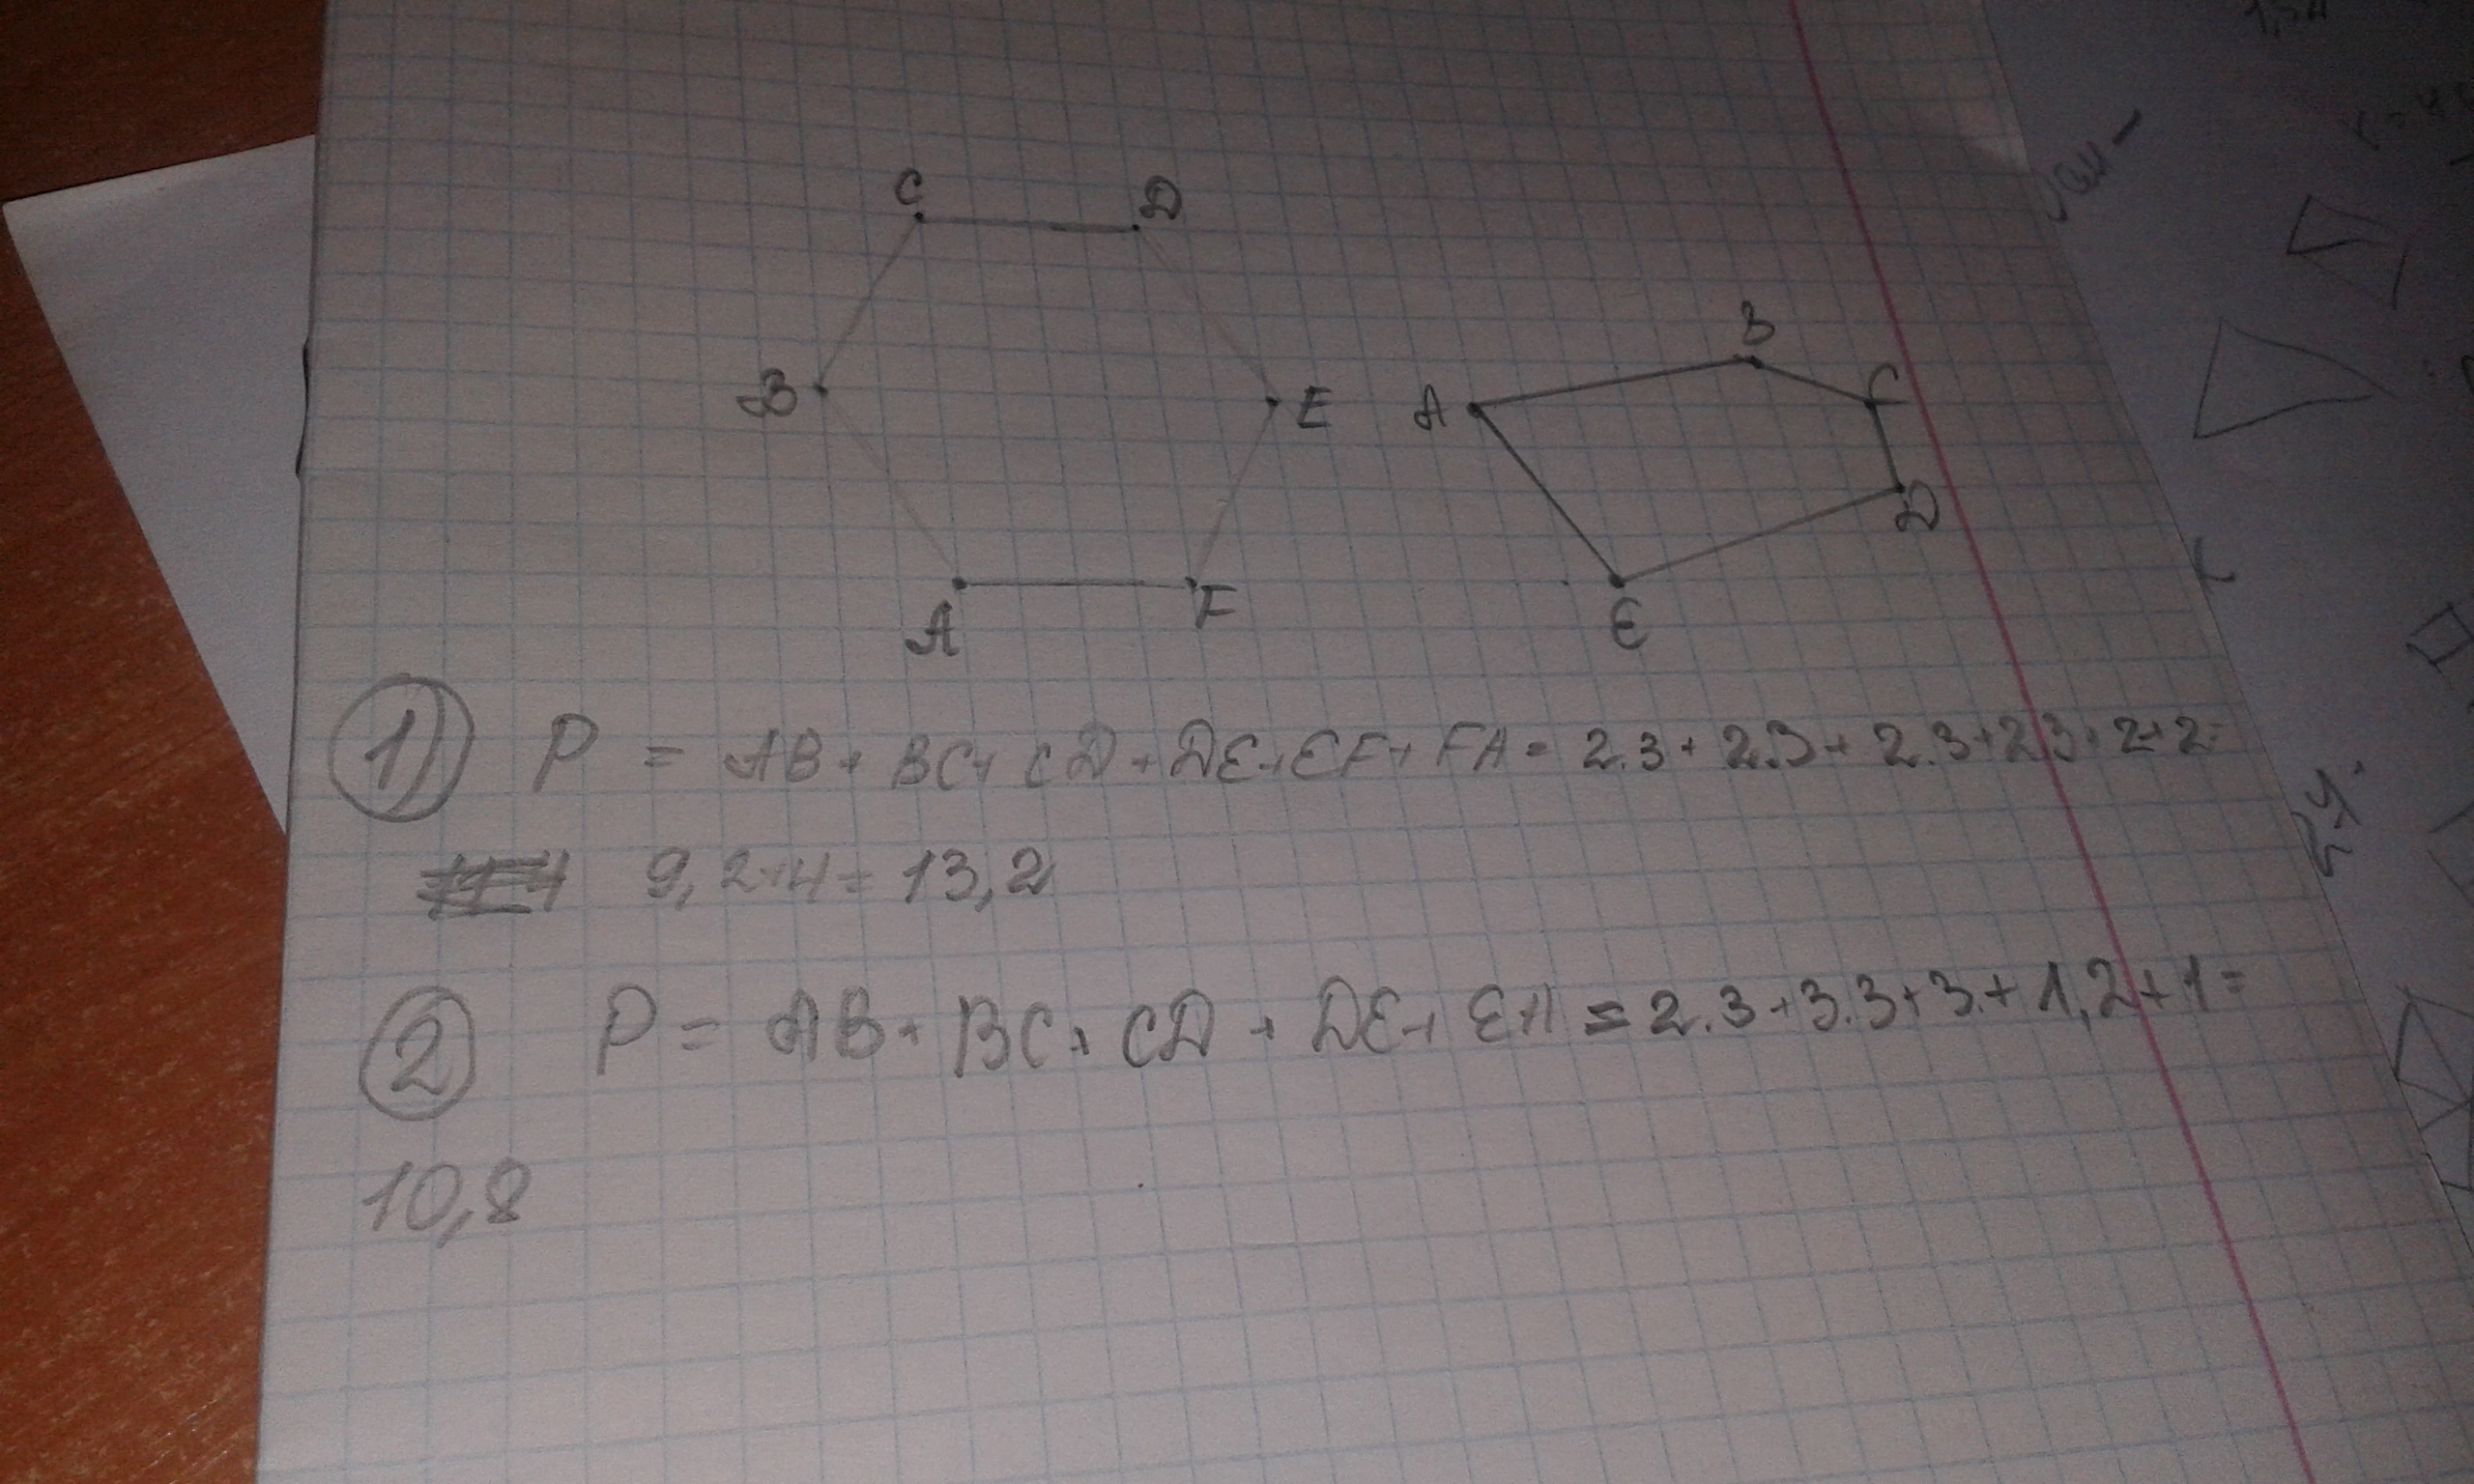 C D
B E
A F
A B C D E
1) P = AB + BC + CD + DE + EF + FA = 2.3 + 2.3 + 2.3 + 2.3 + 2 + 2 =
9,2 + 4 = 13,2
2 P = AB + BC + CD + DE + EA = 2.3 + 3.3 + 3. + 1,2 + 1 =
10,8